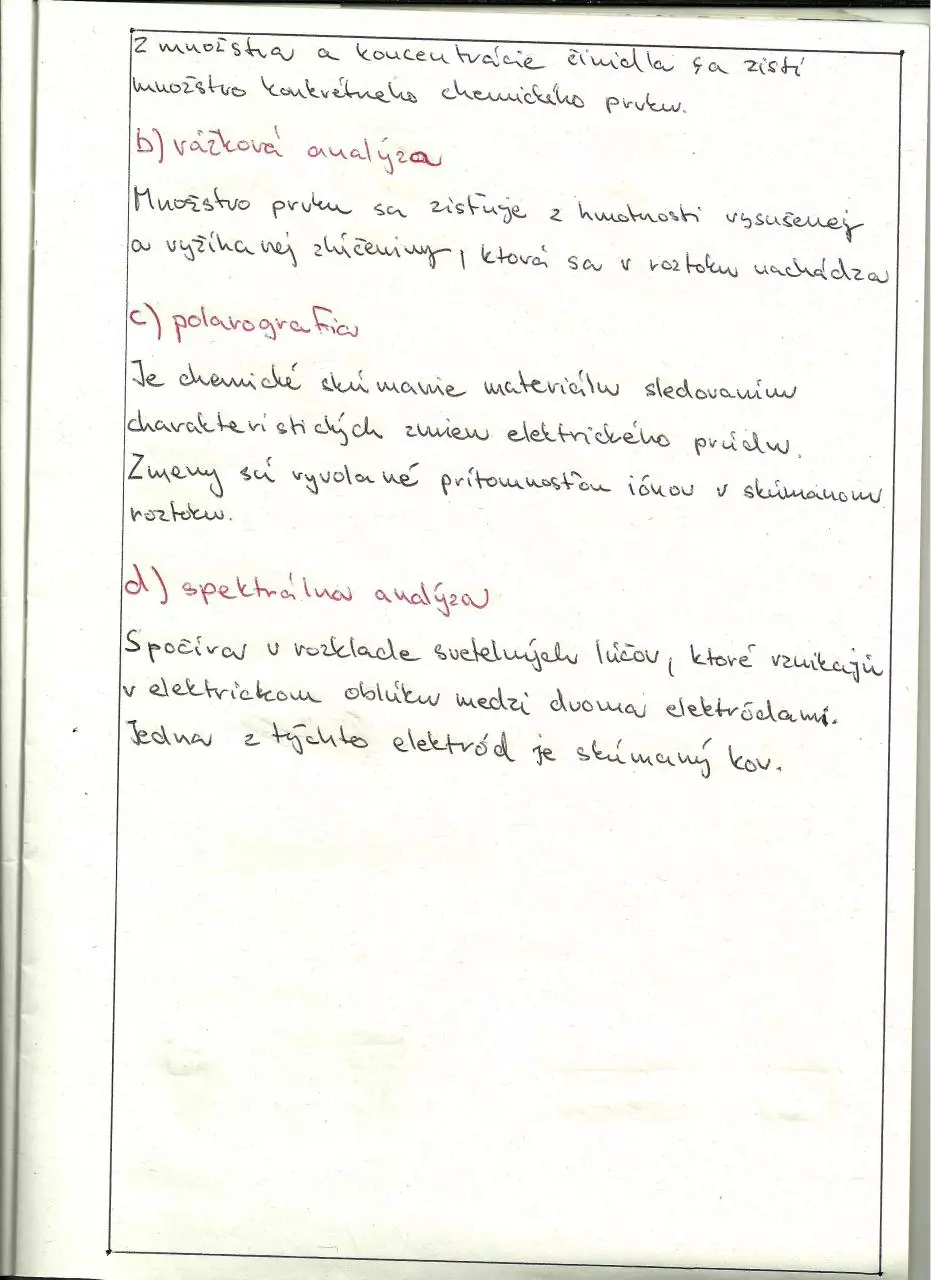 Z množstva a koncentrácie činidla sa zistí
množstvo konkrétneho chemického prvku.
b) vážková analýza
Množstvo prvku sa zisťuje z hmotnosti vysušenej
a vyžíhanej zlúčeniny, ktorá sa v roztoku nachádza
c) polarografia
Je chemické skúmanie materiálu sledovaním
charakteristických zmien elektrického prúdu.
Zmeny sú vyvolané prítomnosťou iónov v skúmanom
roztoku.
d) spektrálna analýza
Spočíva v rozklade svetelných lúčov, ktoré vznikajú
v elektrickom oblúku medzi dvoma elektródami.
Jedna z týchto elektród je skúmaný kov.